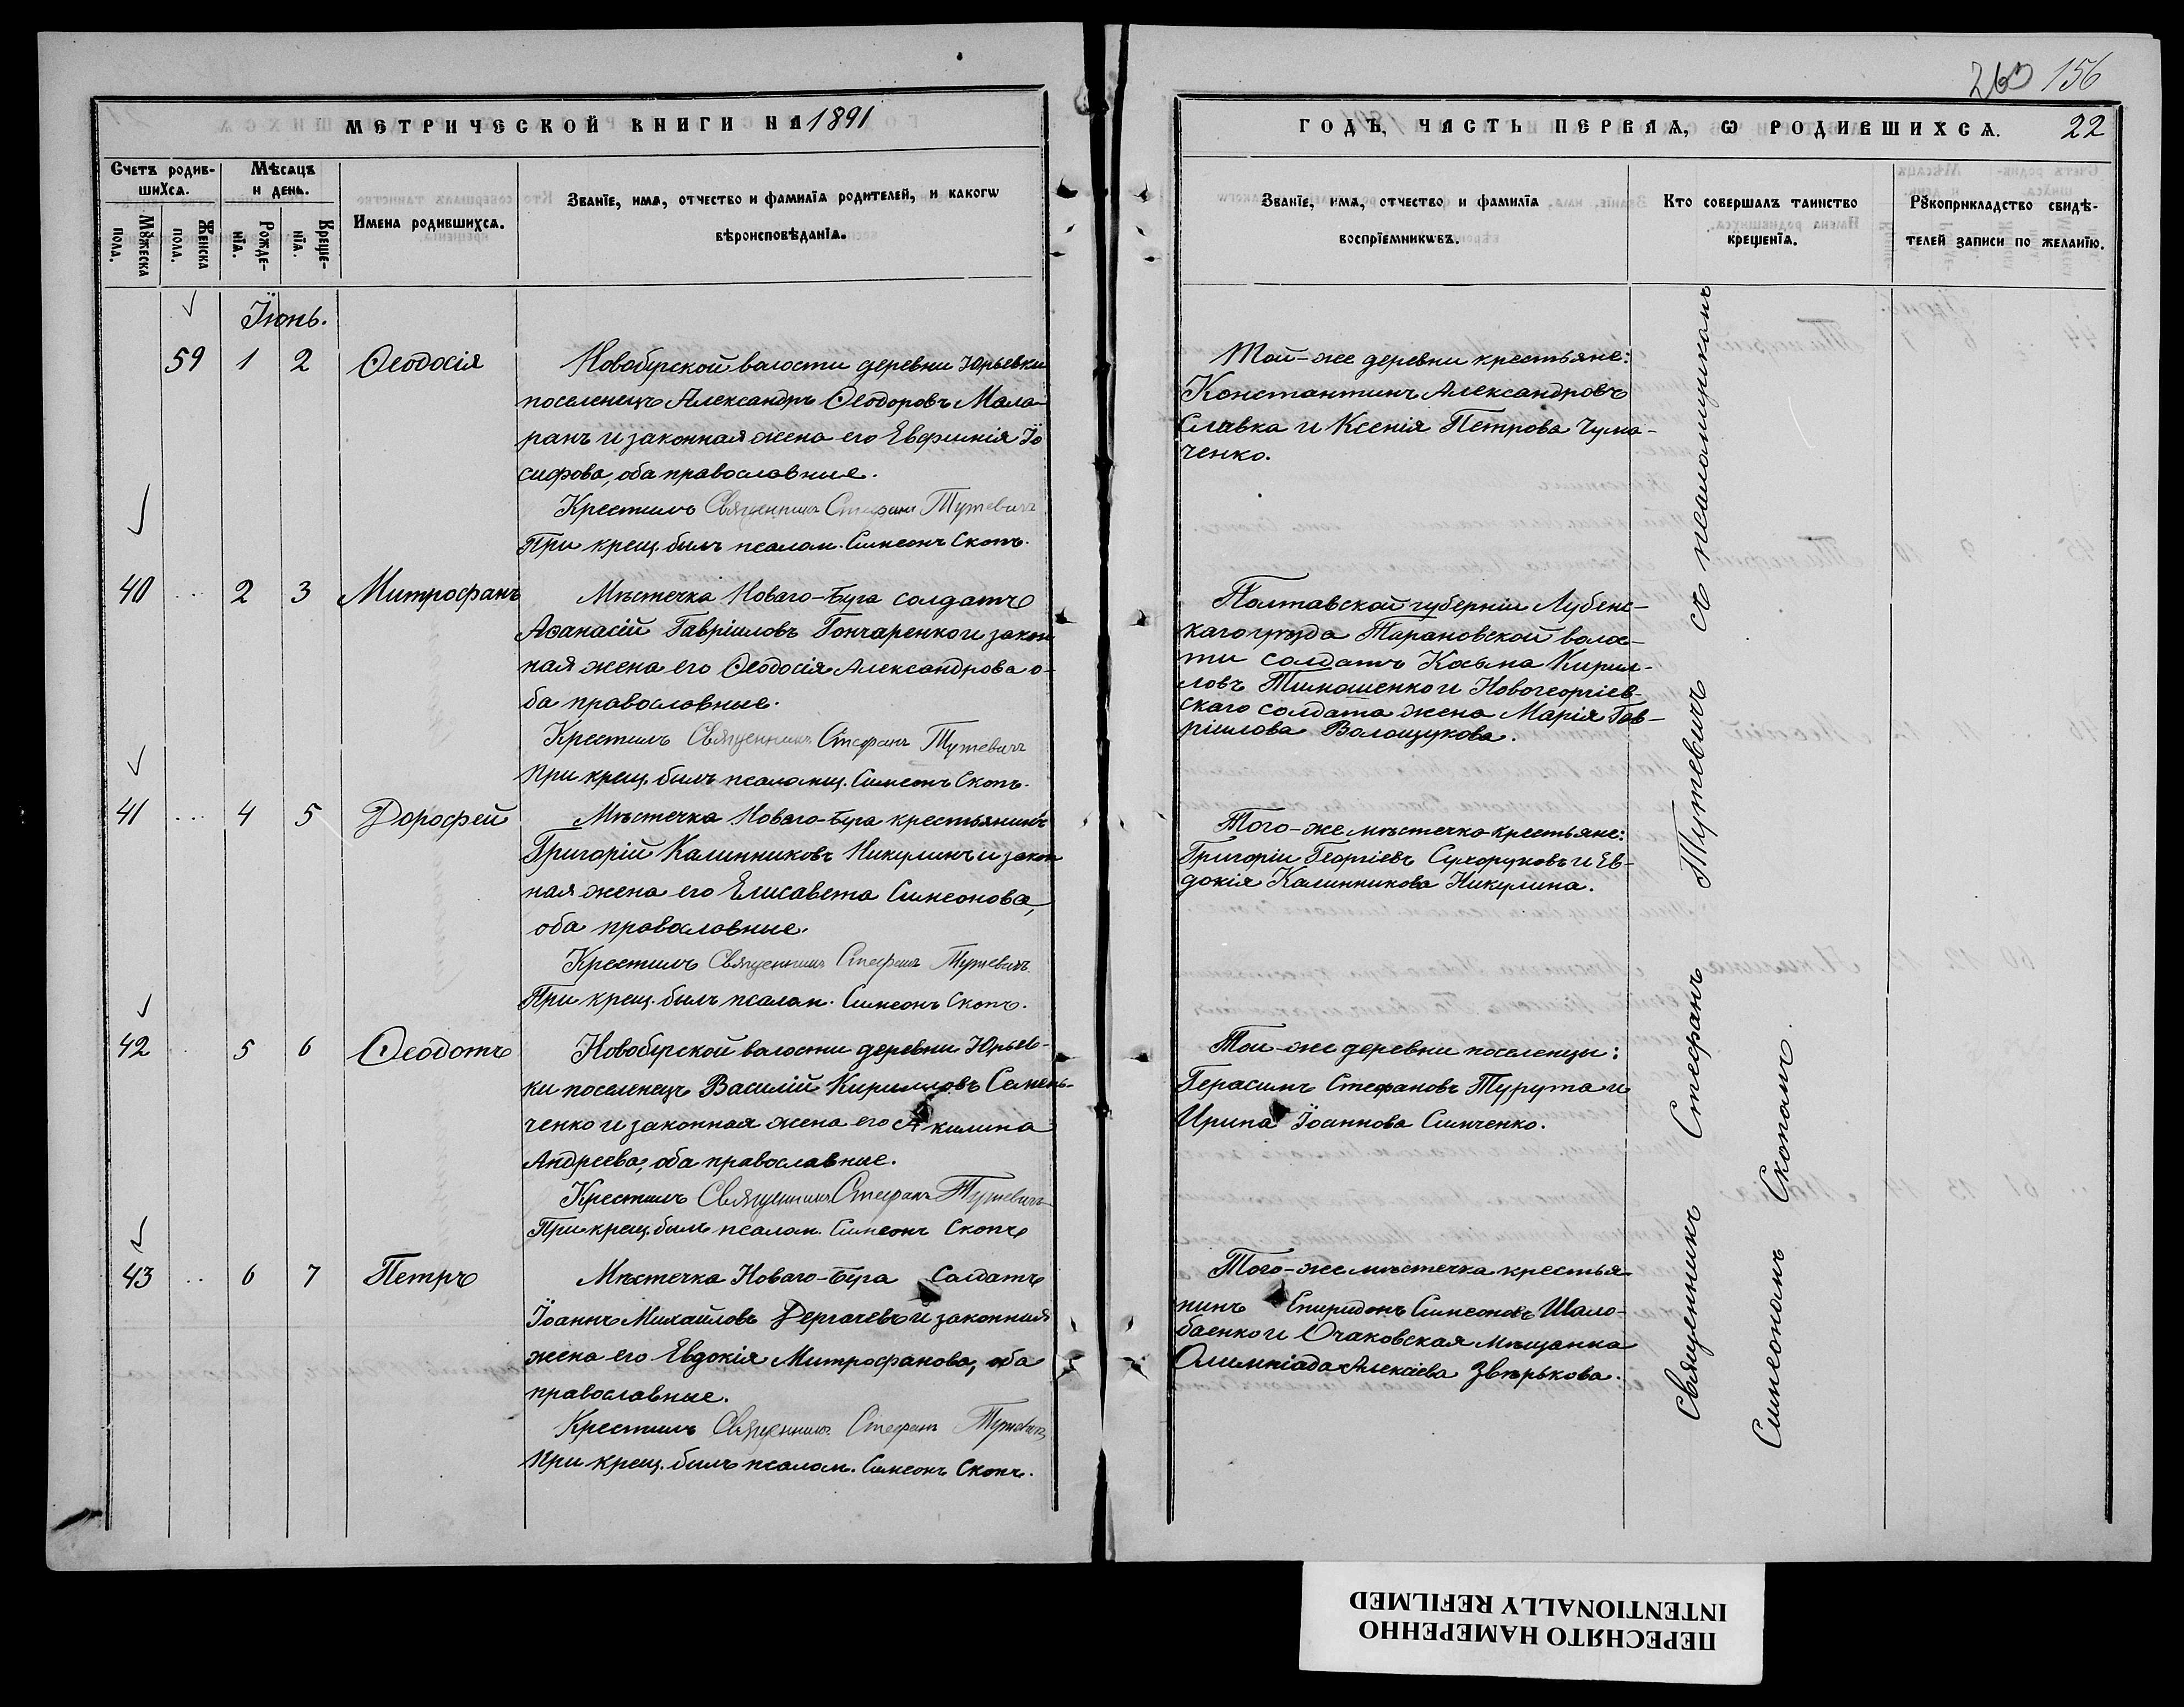 263 156
МЕТРИЧЕСКОЙ КНИГИ НА 1891
ГОДЪ, ЧАСТЬ ПЕРВАЯ, Ѡ РОДИВШИХСѦ. 22
Счетъ родив-
шихсѧ.
Мѣсѧцъ
и день.
Мꙋжеска
пола.
Женска
пола.
Рожде-
нїѧ.
Креще-
нїѧ.
Имена родившихсѧ.
Званїе, имѧ, отчество и фамилїѧ родителей, и какогѡ
вѣроисповѣданїѧ.
Званїе, имѧ, отчество и фамилїѧ
воспрїемникѡвъ.
Кто совершалъ таинство
крещенїѧ.
Рꙋкоприкладство свидѣ-
телей записи по желанїю.
Їюнь.
59 1 2 Ѳеодосія
Новобугской волости деревни Юрьевки
поселенецъ Александръ Ѳеодоровъ Мала-
ранъ и законная жена его Евфимія Іо
сифова, оба православные.
Крестилъ Священникъ Стефанъ Тутевичъ
При крещ. былъ псалом. Симеонъ Скопъ.
Той-же деревни крестьяне:
Константинъ Александровъ
Славка и Ксенія Петрова Чума-
ченко.
40 ... 2 3 Митрофанъ
Мѣстечка Новаго-Буга солдатъ
Аѳанасій Гавріиловъ Гончаренко и закон
ная жена его Ѳеодосія Александрова о-
ба православные.
Крестилъ Священникъ Стефанъ Тутевичъ
При крещ. былъ псаломщ. Симеонъ Скопъ.
Полтавской губерніи Лубенс-
каго уѣзда Тарановской волос-
ти солдатъ Косьма Кирил-
ловъ Тимошенко и Новогеоргіев-
скаго солдата жена Марія Гав-
ріилова Волощукова.
41 ... 4 5 Дорофей
Мѣстечка Новаго-Буга крестьянинъ
Григорій Калинниковъ Никулинъ и закон
ная жена его Елисавета Симеонова,
оба православные.
Крестилъ Священникъ Стефанъ Тутевичъ
При крещ. былъ псалом. Симеонъ Скопъ.
Того-же мѣстечка крестьяне:
Григорій Георгіевъ Сухоруковъ и Ев-
докія Калинникова Никулина.
42 . 5 6 Ѳеодотъ
Новобугской волости деревни Юрьев-
ки поселенецъ Василій Кирилловъ Семень-
ченко и законная жена его Акилина
Андреева, оба православные.
Крестилъ Священникъ Стефанъ Тутевичъ
При крещ. былъ псалом. Симеонъ Скопъ
Той-же деревни поселенцы:
Герасимъ Стефановъ Турута и
Ирина Іоаннова Симченко.
43 .. 6 7 Петръ
Мѣстечка Новаго-Буга Солдатъ
Іоаннъ Михайловъ Дергачевъ и законная
жена его Евдокія Митрофанова, оба
православные.
Крестилъ Священникъ Стефанъ Тутевичъ
При крещ. былъ псалом. Симеонъ Скопъ.
Того-же мѣстечка крестья-
нинъ Спиридонъ Симеоновъ Шало-
баенко и Очаковская мѣщанка
Олимпіада Алексіева Звѣрькова.
Священникъ Стефанъ Тутевичъ съ псаломщикомъ
Симеономъ Скопомъ.
ПЕРЕСНЯТО НАМЕРЕННО
INTENTIONALLY REFILMED